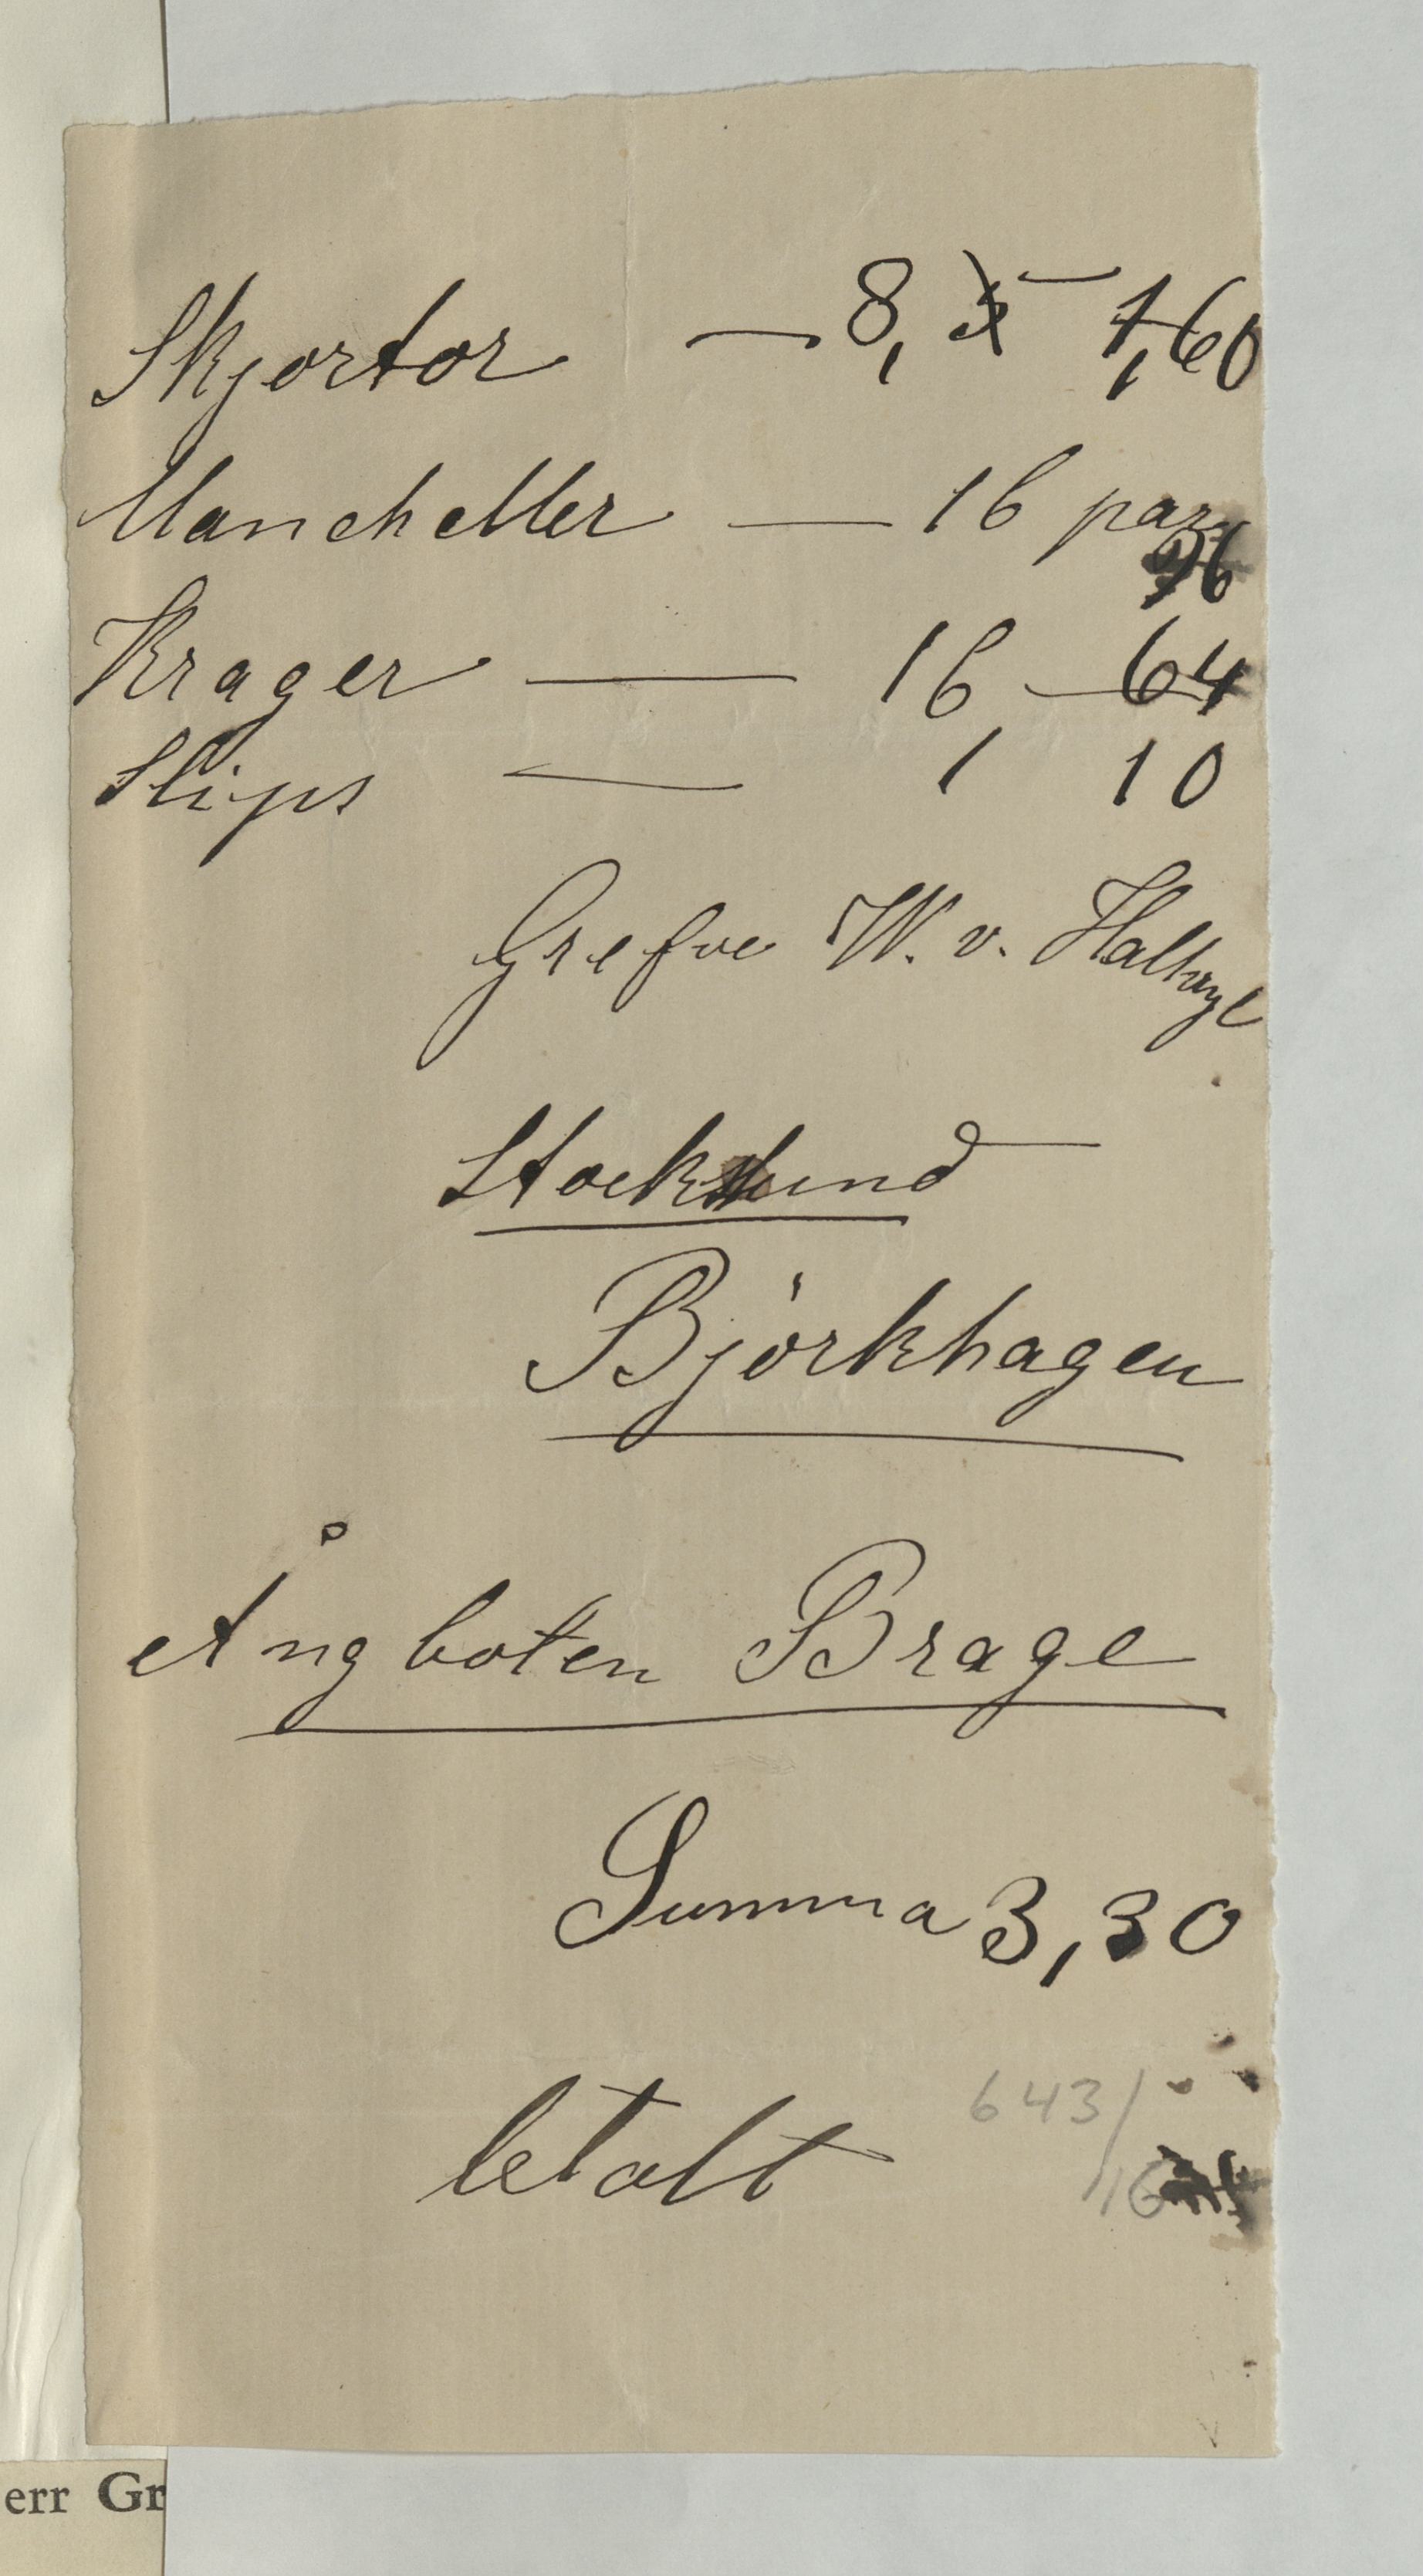 Skjortor — 8, — 1,60
Manchetter — 16 par
96
Krager — 16, — 64
Slips — 1 10
Grefve W. v. Hallwyl
Stocksund
Björkhagen
Ångboten Brage
Summa 3,30
betalt
643/
16
err Gr